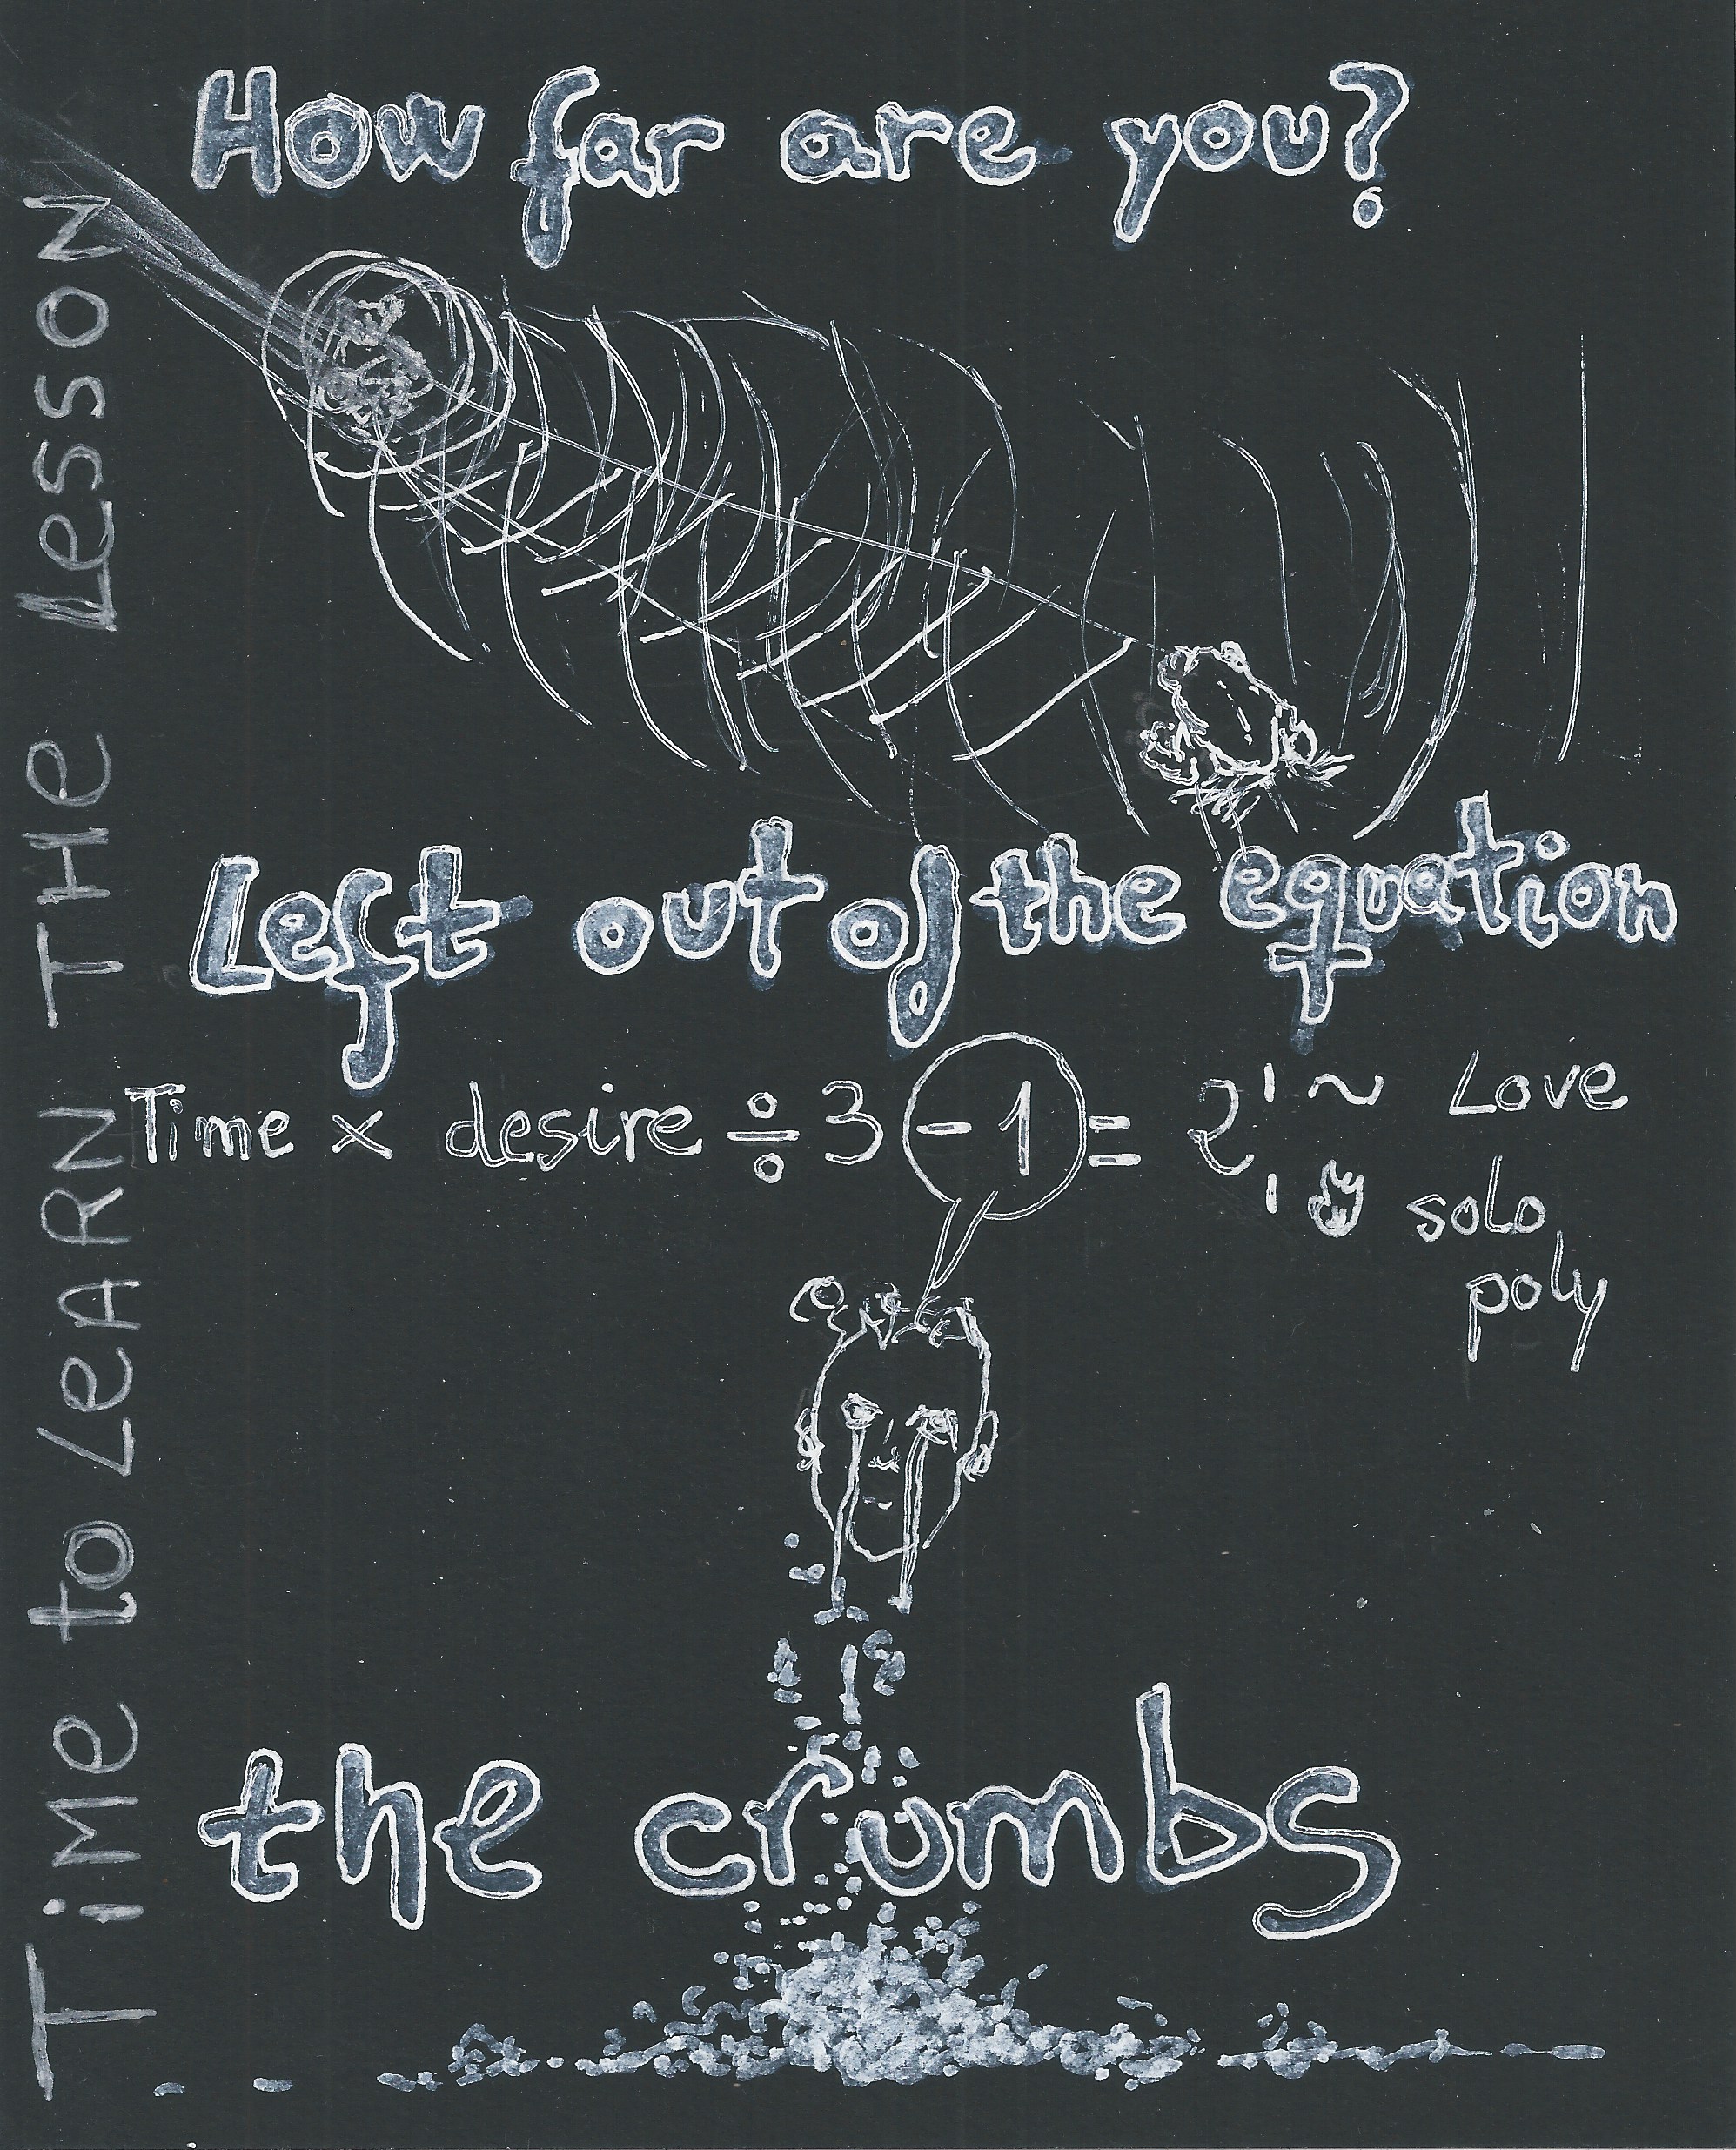 How far are you?
Left out of the equation
Time x desire ÷ 3 -1 = 2 ~ Love
solo
poly
the crumbs
TiME to LeARN THe Lesson